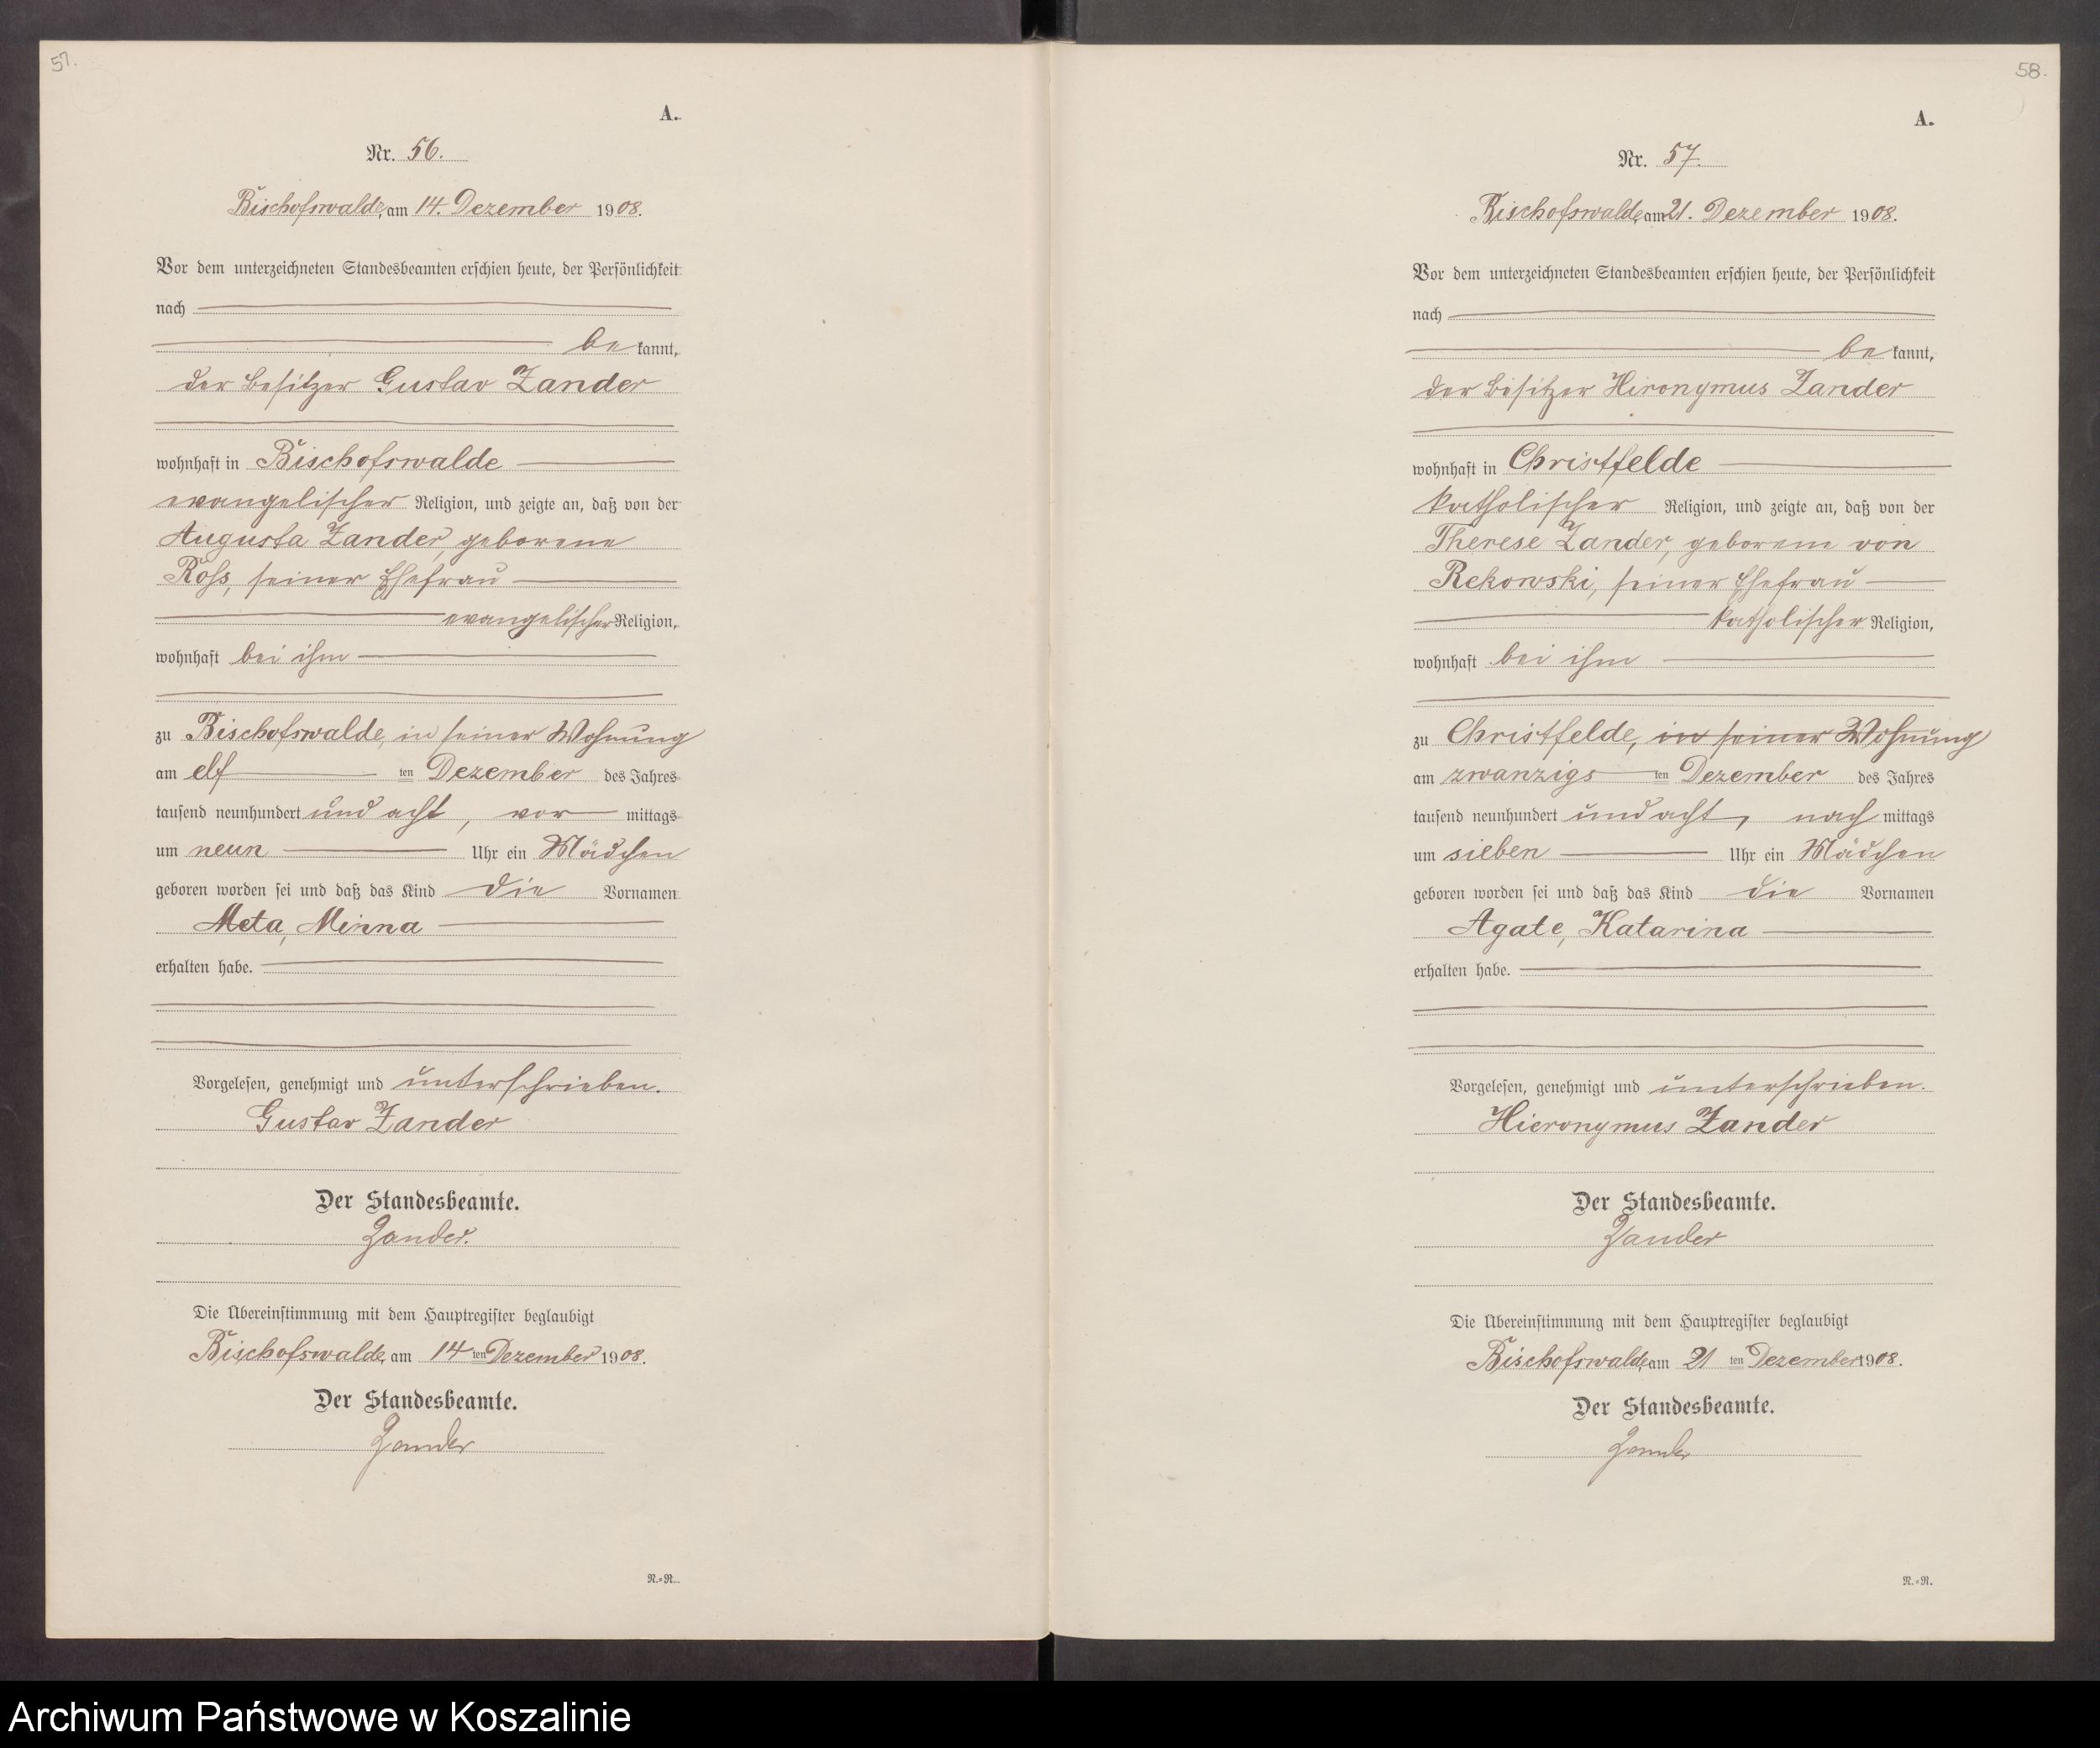 57.
A.
Nr. 56.
Bischofswalde, am 14. Dezember 1908.
Vor dem unterzeichneten Standesbeamten erschien heute, der Persönlichkeit
nach
be kannt,
der Besitzer Gustav Zander
wohnhaft in Bischofswalde
evangelischer Religion, und zeigte an, daß von der
Augusta Zander, geborene
Röhs, seiner Ehefrau
evangelischer Religion,
wohnhaft bei ihm
zu Bischofswalde, in seiner Wohnung
am elf ten Dezember des Jahres
tausend neunhundert und acht, vor mittags
um neun Uhr ein Mädchen
geboren worden sei und daß das Kind die Vornamen
Meta, Minna
erhalten habe.
Vorgelesen, genehmigt und unterschrieben.
Gustav Zander
Der Standesbeamte.
Zander.
Die Übereinstimmung mit dem Hauptregister beglaubigt
Bischofswalde, am 14 ten Dezember 1908.
Der Standesbeamte.
Zander
N.=N.
58.
A.
Nr. 57.
Bischofswalde, am 21. Dezember 1908.
Vor dem unterzeichneten Standesbeamten erschien heute, der Persönlichkeit
nach
be kannt,
der Besitzer Hironymus Zander
wohnhaft in Christfelde
katholischer Religion, und zeigte an, daß von der
Therese Zander, geborene von
Rekowski, seiner Ehefrau
katholischer Religion,
wohnhaft bei ihm
zu Christfelde, in seiner Wohnung
am zwanzigs ten Dezember des Jahres
tausend neunhundert und acht, nach mittags
um sieben Uhr ein Mädchen
geboren worden sei und daß das Kind die Vornamen
Agate, Katarina
erhalten habe.
Vorgelesen, genehmigt und unterschrieben.
Hieronymus Zander
Der Standesbeamte.
Zander
Die Übereinstimmung mit dem Hauptregister beglaubigt
Bischofswalde, am 21 ten Dezember 1908.
Der Standesbeamte.
Zander
N.=N.
Archiwum Państwowe w Koszalinie